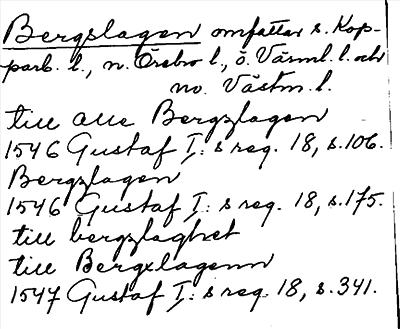 Bergslagen omfattar s. Kop-
parb. l., n. Örebro l., ö. Värml. l. och
nv. Västm. l.
till alle Bergzlagen
1546 Gustaf I:s reg. 18, s. 106.
Bergzlagen
1546 Gustaf I:s reg. 18, s. 175.
till bergzlaghet
till Bergxlagenn
1547 Gustaf I:s reg. 18, s. 341.